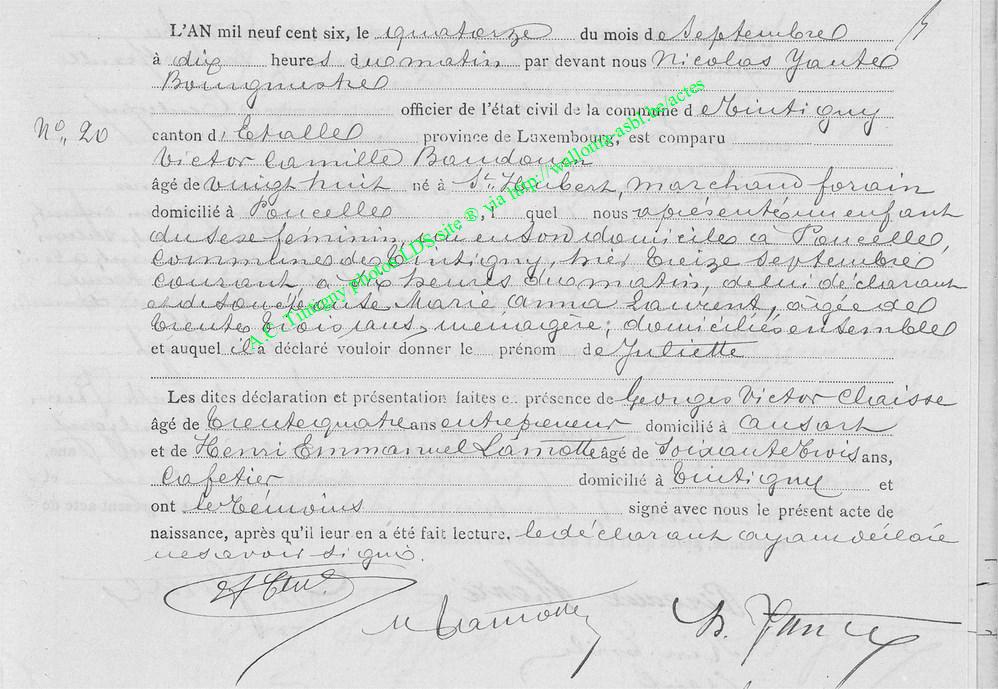 L'AN mil neuf cent six, le quatorze du mois de Septembre
à dix heures du matin par devant nous Nicolas Yante
Bourgmestre
officier de l'état civil de la commune de Tintigny
No. 20
canton d' Etalle province de Luxembourg, est comparu
Victor Camille Baudouin
âgé de vingt huit né à St. Houbert, marchand forain
domicilié à Poncelle, l quel nous a présenté un enfant
du sexe féminin, né en son domicile à Poncelle,
commune de Tintigny, hier treize septembre
courant, à dix heures du matin, de lui déclarant
et de son épouse Marie Anna Laurent, âgée de
trente trois ans, ménagère; domiciliés ensemble
et auquel il a déclaré vouloir donner le prénom de Juliette
Les dites déclaration et présentation faites e. présence de Georges Victor Chaisse
âgé de trente quatre ans entrepreneur domicilié à Ansart
et de Henri Emmanuel Lamotte âgé de soixante trois ans,
Cafetier domicilié à Tintigny et
ont les témoins signé avec nous le présent acte de
naissance, après qu'il leur en a été fait lecture, le déclarant ayant déclaré
ne savoir signé.
Lamotte
A.C. Tintigny photos LDS site ® via http://wallonia-asbl.be/actes